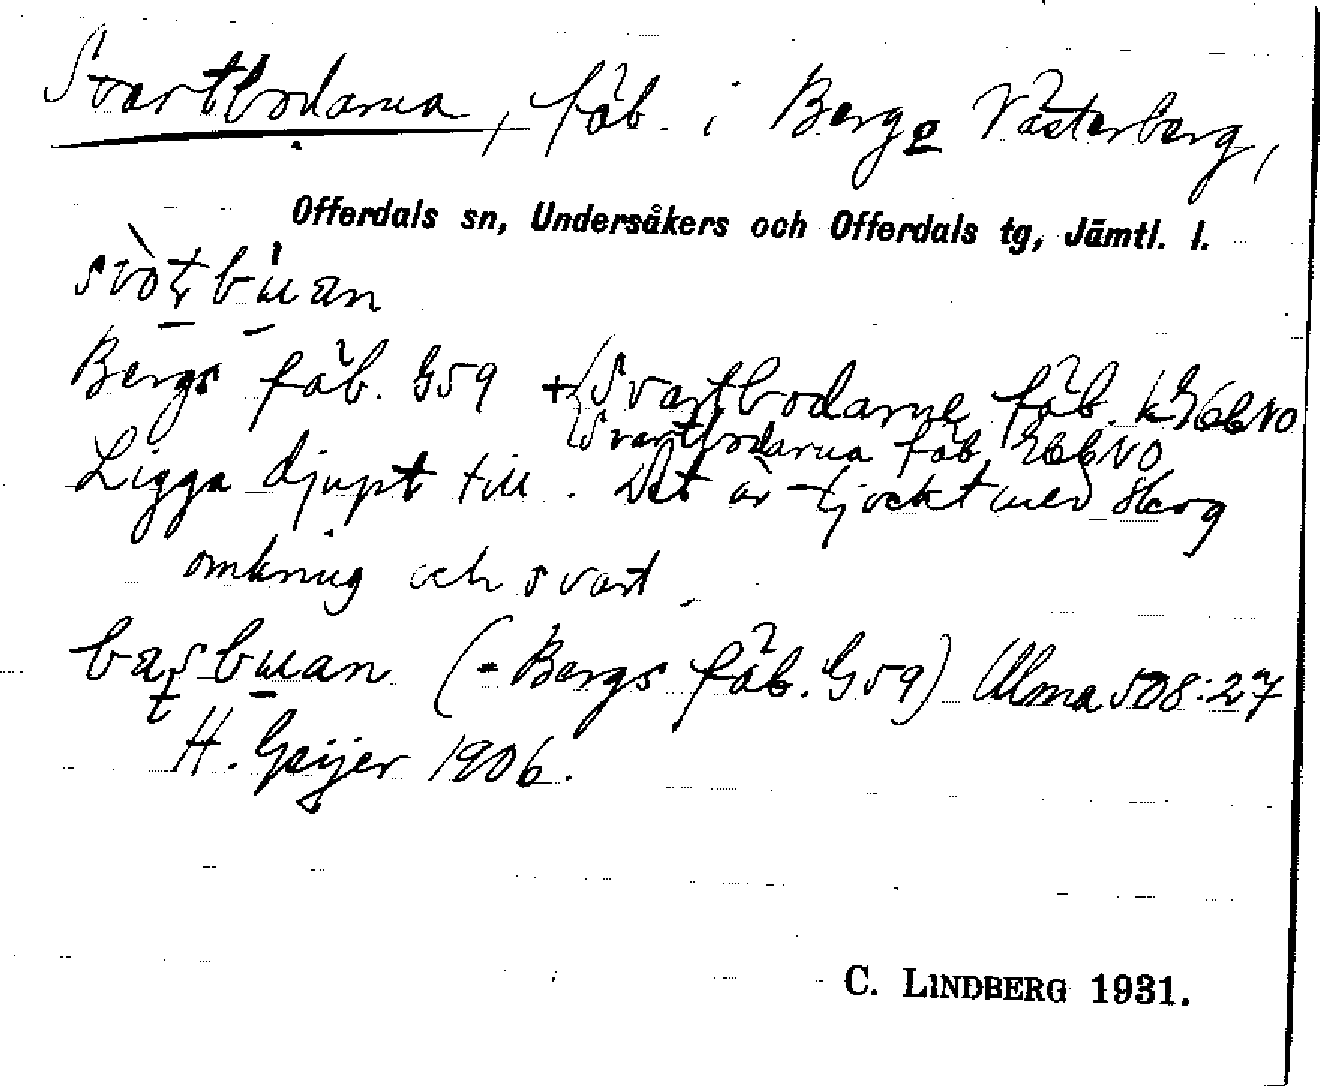 Svartbodarna, fäb. i Berg o Västerberg,
Offerdals sn, Undersåkers och Offerdals tg, Jämtl. l.
svòtbuan
Bergs fäb. G59 + Svartbodarne fäb. k
Svartbodarna fäb.
Ligga djupt till. Det är tjockt med skog
omkring och svart.
basbuan (= Bergs fäb. G59) Ulma 508:27
H. Geijer 1906.
C. LINDBERG 1931.